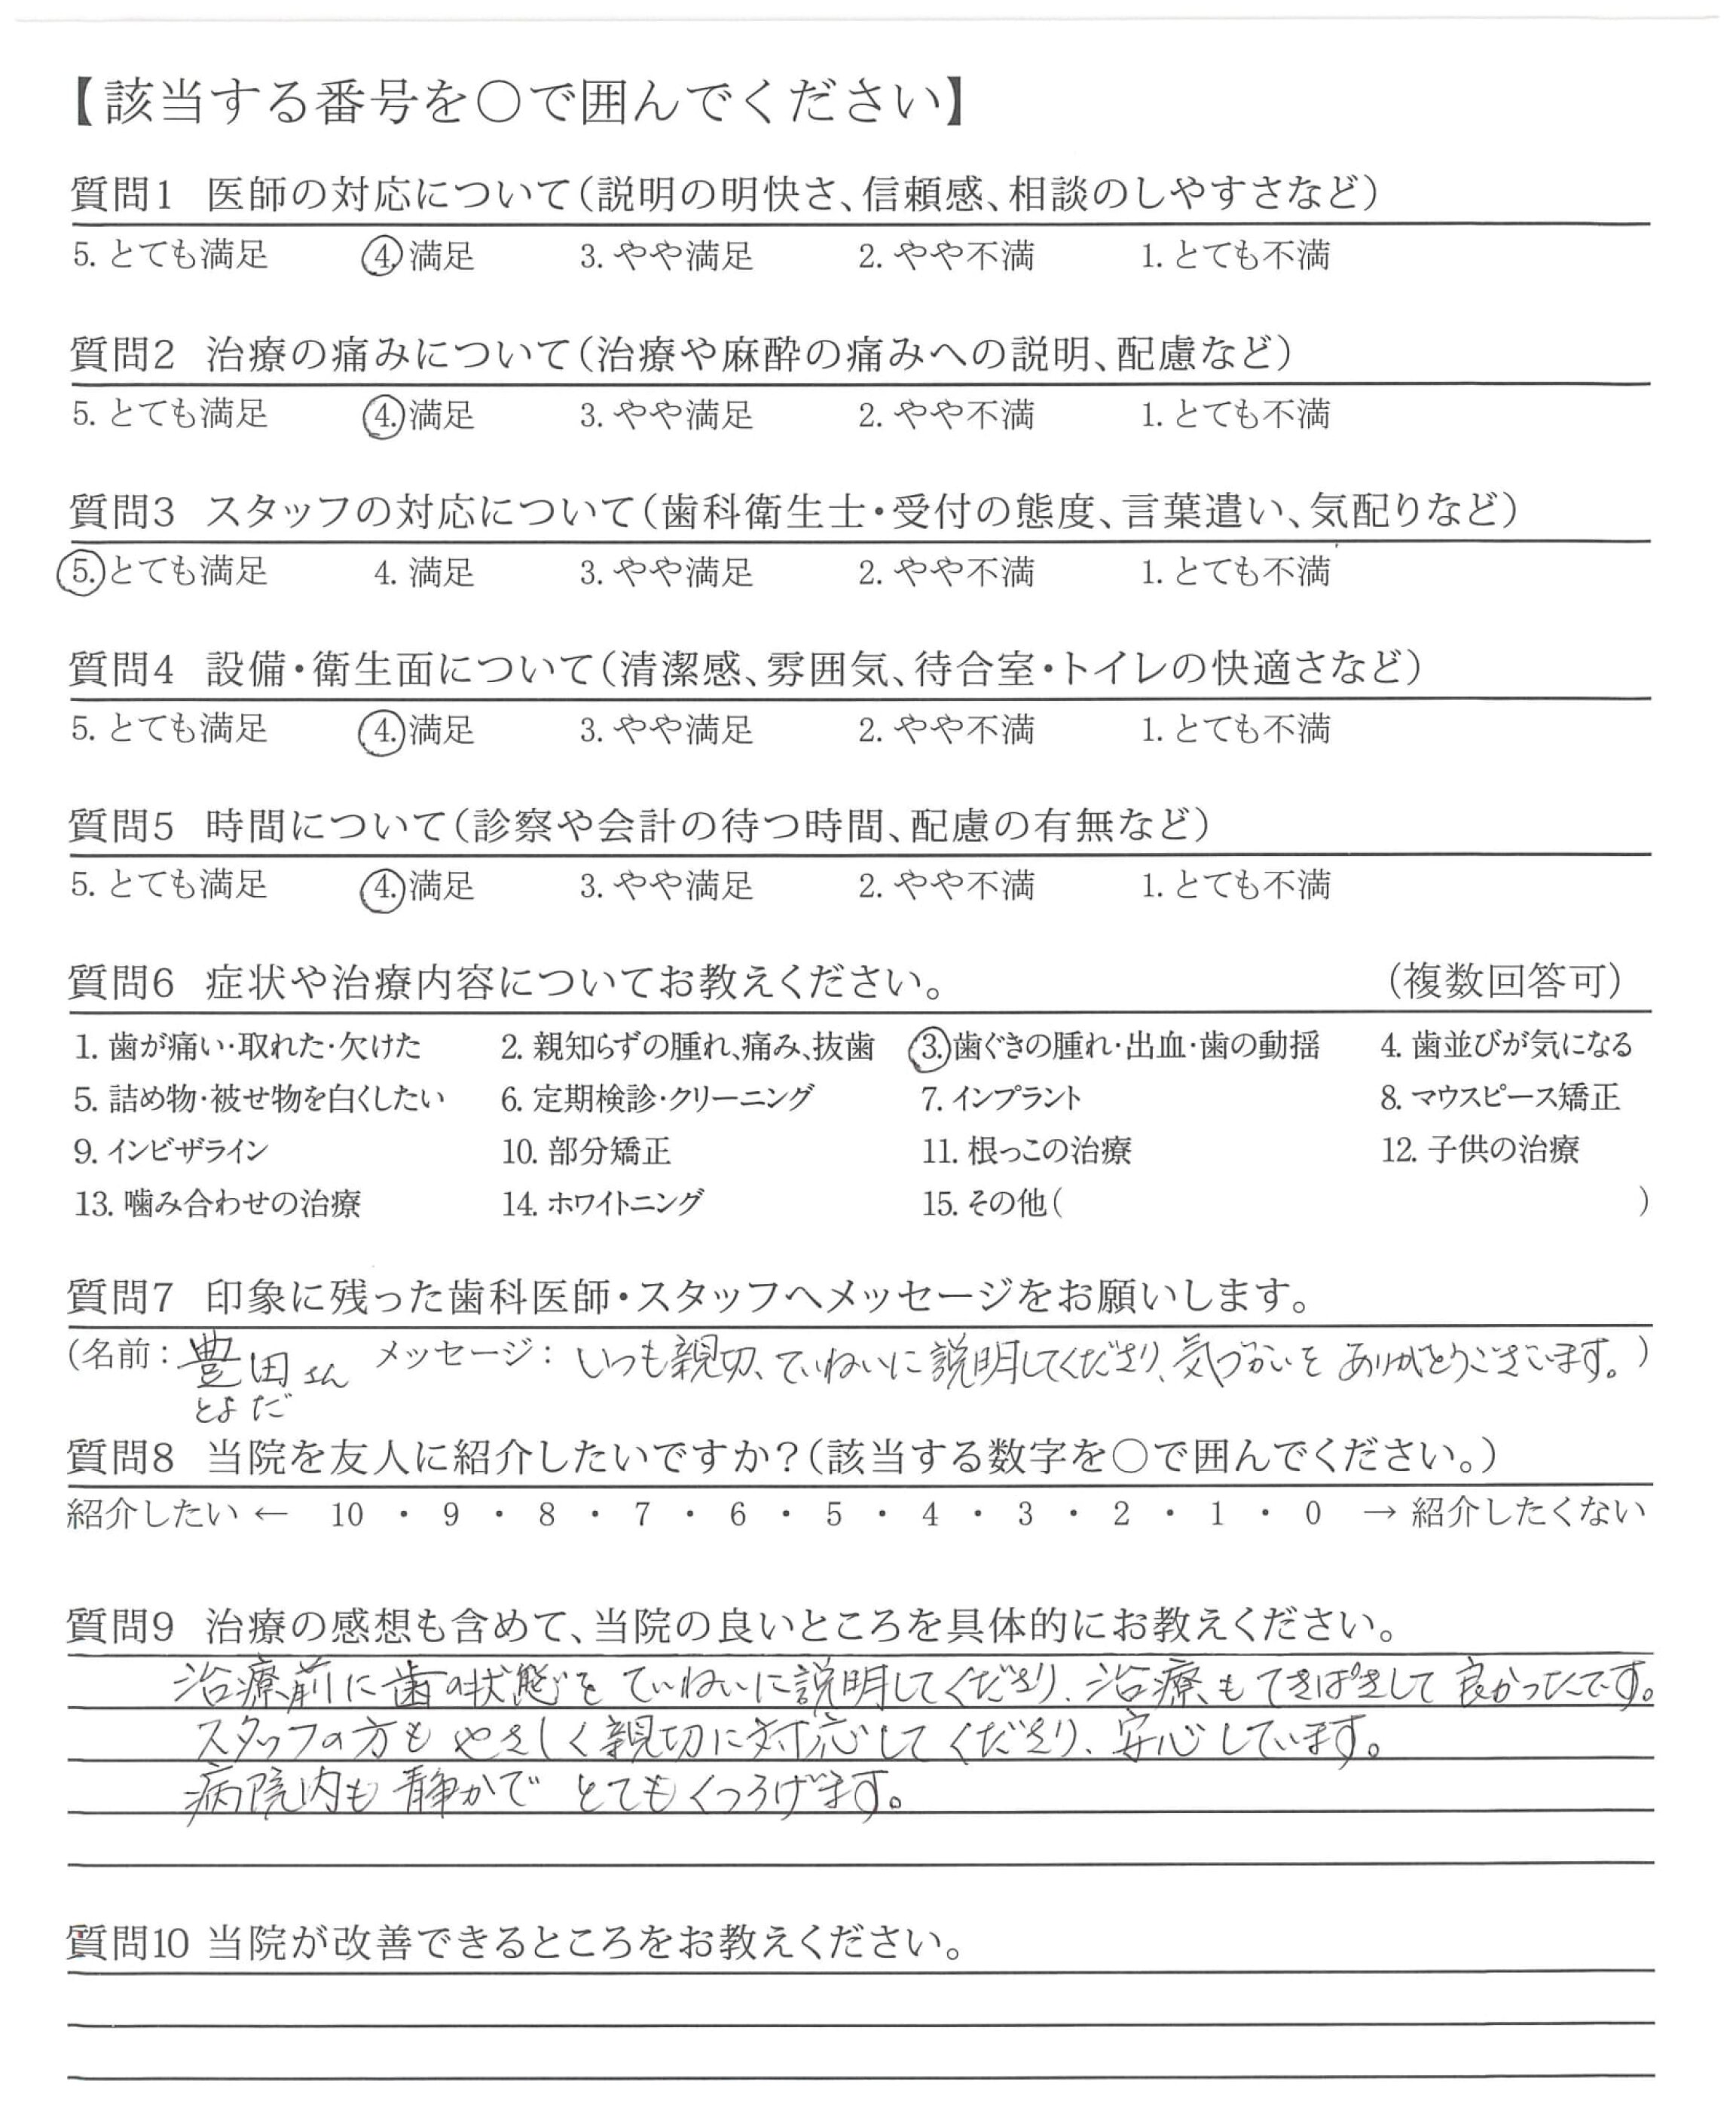 【該当する番号を○で囲んでください】
質問1 医師の対応について(説明の明快さ、信頼感、相談のしやすさなど)
5. とても満足 4. 満足 3. やや満足 2. やや不満 1. とても不満
質問2 治療の痛みについて(治療や麻酔の痛みへの説明、配慮など)
5. とても満足 4. 満足 3. やや満足 2. やや不満 1. とても不満
質問3 スタッフの対応について(歯科衛生士・受付の態度、言葉遣い、気配りなど)
5. とても満足 4. 満足 3. やや満足 2. やや不満 1. とても不満
質問4 設備・衛生面について(清潔感、雰囲気、待合室・トイレの快適さなど)
5. とても満足 4. 満足 3. やや満足 2. やや不満 1. とても不満
質問5 時間について(診察や会計の待つ時間、配慮の有無など)
5. とても満足 4. 満足 3. やや満足 2. やや不満 1. とても不満
質問6 症状や治療内容についてお教えください。 (複数回答可)
1. 歯が痛い・取れた・欠けた 2. 親知らずの腫れ、痛み、抜歯 3. 歯ぐきの腫れ・出血・歯の動揺 4. 歯並びが気になる
5. 詰め物・被せ物を白くしたい 6. 定期検診・クリーニング 7. インプラント 8. マウスピース矯正
9. インビザライン 10. 部分矯正 11. 根っこの治療 12. 子供の治療
13. 噛み合わせの治療 14. ホワイトニング 15. その他( )
質問7 印象に残った歯科医師・スタッフへメッセージをお願いします。
(名前：豊田さん メッセージ：いつも親切、ていねいに説明してくださり、気づかいを ありがとうございます。)
とよだ
質問8 当院を友人に紹介したいですか？(該当する数字を○で囲んでください。)
紹介したい ← 10 ・ 9 ・ 8 ・ 7 ・ 6 ・ 5 ・ 4 ・ 3 ・ 2 ・ 1 ・ 0 → 紹介したくない
質問9 治療の感想も含めて、当院の良いところを具体的にお教えください。
治療前に歯の状態を ていねいに説明してくださり、治療もてきぱきして 良かったです。
スタッフの方も やさしく親切に対応して くださり、安心しています。
病院内も静かで とてもくつろげます。
質問10 当院が改善できるところをお教えください。